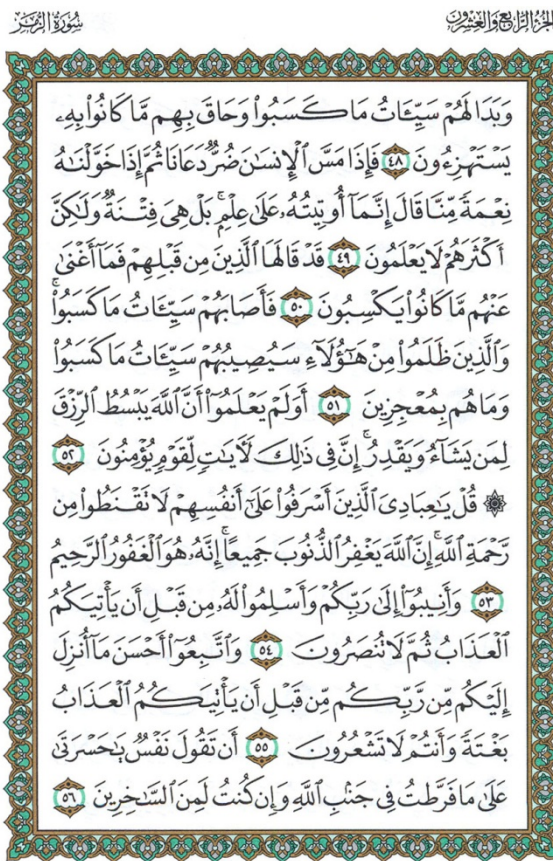 الجزء الرابع والعشرون
سورة الزمر
وَبَدَا لَهُمْ سَيِّـَٔاتُ مَا كَسَبُوا۟ وَحَاقَ بِهِم مَّا كَانُوا۟ بِهِۦ
يَسْتَهْزِءُونَ ٤٨ فَإِذَا مَسَّ ٱلْإِنسَـٰنَ ضُرٌّ دَعَانَا ثُمَّ إِذَا خَوَّلْنَـٰهُ
نِعْمَةً مِّنَّا قَالَ إِنَّمَآ أُوتِيتُهُۥ عَلَىٰ عِلْمٍۭ ۚ بَلْ هِىَ فِتْنَةٌ وَلَـٰكِنَّ
أَكْثَرَهُمْ لَا يَعْلَمُونَ ٤٩ قَدْ قَالَهَا ٱلَّذِينَ مِن قَبْلِهِمْ فَمَآ أَغْنَىٰ
عَنْهُم مَّا كَانُوا۟ يَكْسِبُونَ ٥٠ فَأَصَابَهُمْ سَيِّـَٔاتُ مَا كَسَبُوا۟ ۚ
وَٱلَّذِينَ ظَلَمُوا۟ مِنْ هَـٰٓؤُلَآءِ سَيُصِيبُهُمْ سَيِّـَٔاتُ مَا كَسَبُوا۟
وَمَا هُم بِمُعْجِزِينَ ٥١ أَوَلَمْ يَعْلَمُوٓا۟ أَنَّ ٱللَّهَ يَبْسُطُ ٱلرِّزْقَ
لِمَن يَشَآءُ وَيَقْدِرُ ۚ إِنَّ فِى ذَٰلِكَ لَـَٔايَـٰتٍ لِّقَوْمٍ يُؤْمِنُونَ ٥٢
۞ قُلْ يَـٰعِبَادِىَ ٱلَّذِينَ أَسْرَفُوا۟ عَلَىٰٓ أَنفُسِهِمْ لَا تَقْنَطُوا۟ مِن
رَّحْمَةِ ٱللَّهِ ۚ إِنَّ ٱللَّهَ يَغْفِرُ ٱلذُّنُوبَ جَمِيعًا ۚ إِنَّهُۥ هُوَ ٱلْغَفُورُ ٱلرَّحِيمُ
٥٣ وَأَنِيبُوٓا۟ إِلَىٰ رَبِّكُمْ وَأَسْلِمُوا۟ لَهُۥ مِن قَبْلِ أَن يَأْتِيَكُمُ
ٱلْعَذَابُ ثُمَّ لَا تُنصَرُونَ ٥٤ وَٱتَّبِعُوٓا۟ أَحْسَنَ مَآ أُنزِلَ
إِلَيْكُم مِّن رَّبِّكُم مِّن قَبْلِ أَن يَأْتِيَكُمُ ٱلْعَذَابُ
بَغْتَةً وَأَنتُمْ لَا تَشْعُرُونَ ٥٥ أَن تَقُولَ نَفْسٌ يَـٰحَسْرَتَىٰ
عَلَىٰ مَا فَرَّطتُ فِى جَنۢبِ ٱللَّهِ وَإِن كُنتُ لَمِنَ ٱلسَّـٰخِرِينَ ٥٦